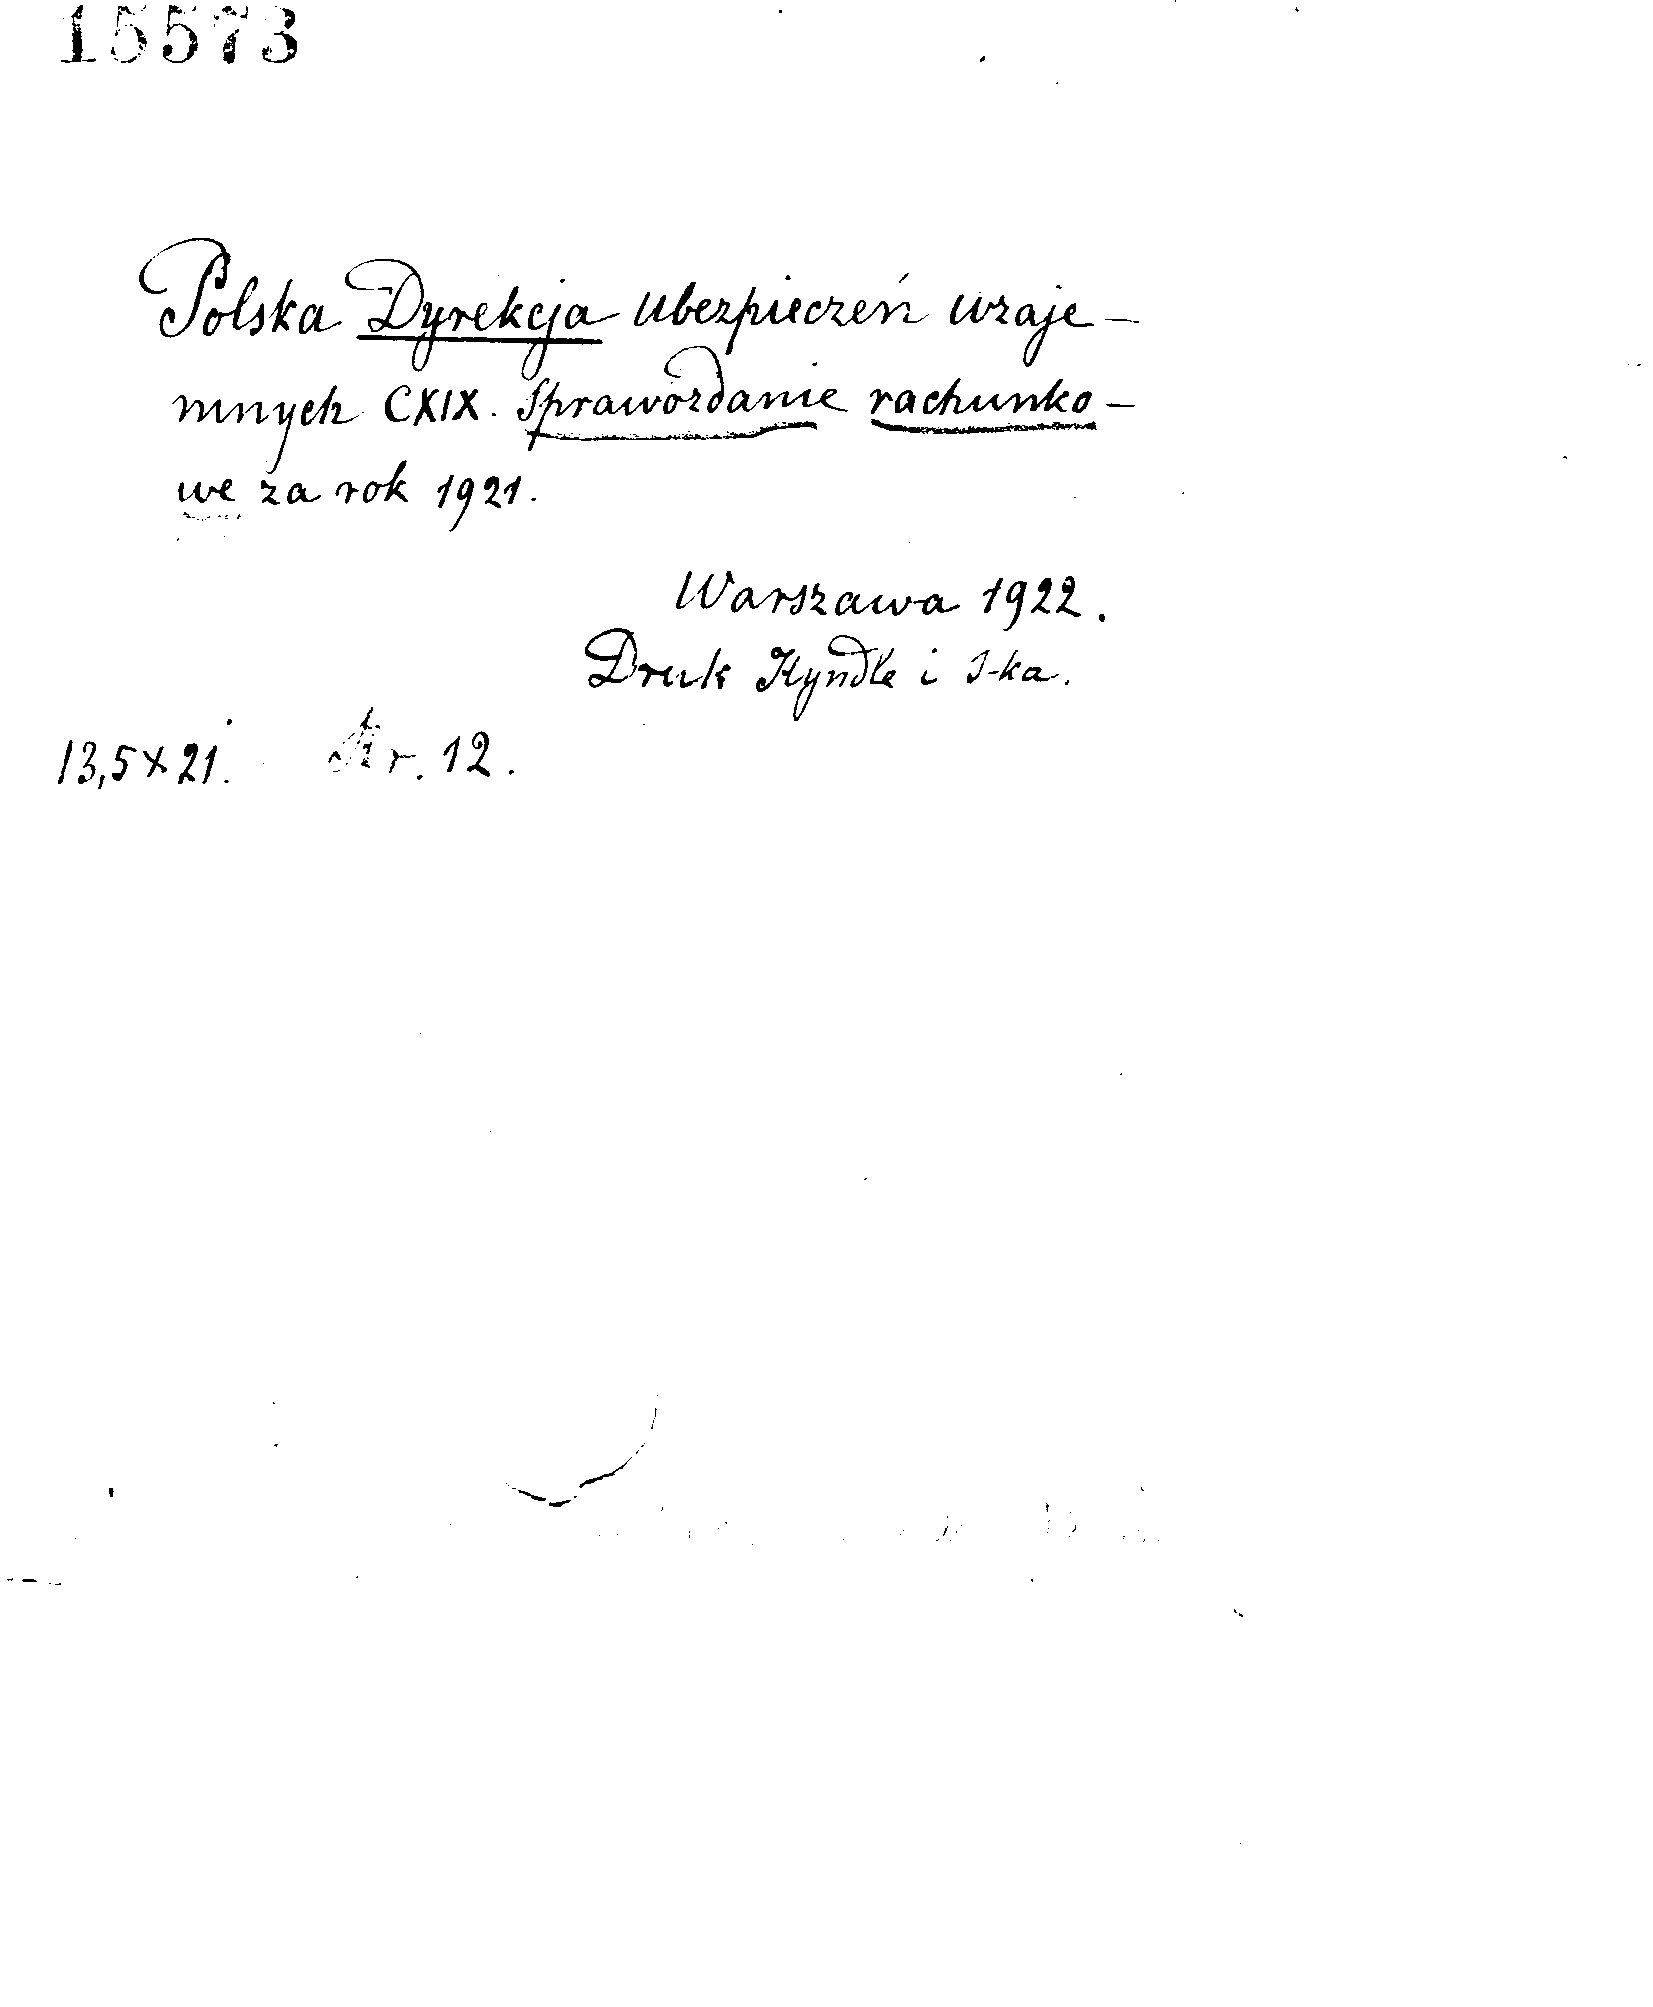 15573
Polska Dyrekcja ubezpieczeń wzaje-
mnych CXIX. Sprawozdanie rachunko-
we za rok 1921.
Warszawa 1922.
Druk Kyndle i S-ka.
13,5×21. Nr. 12.